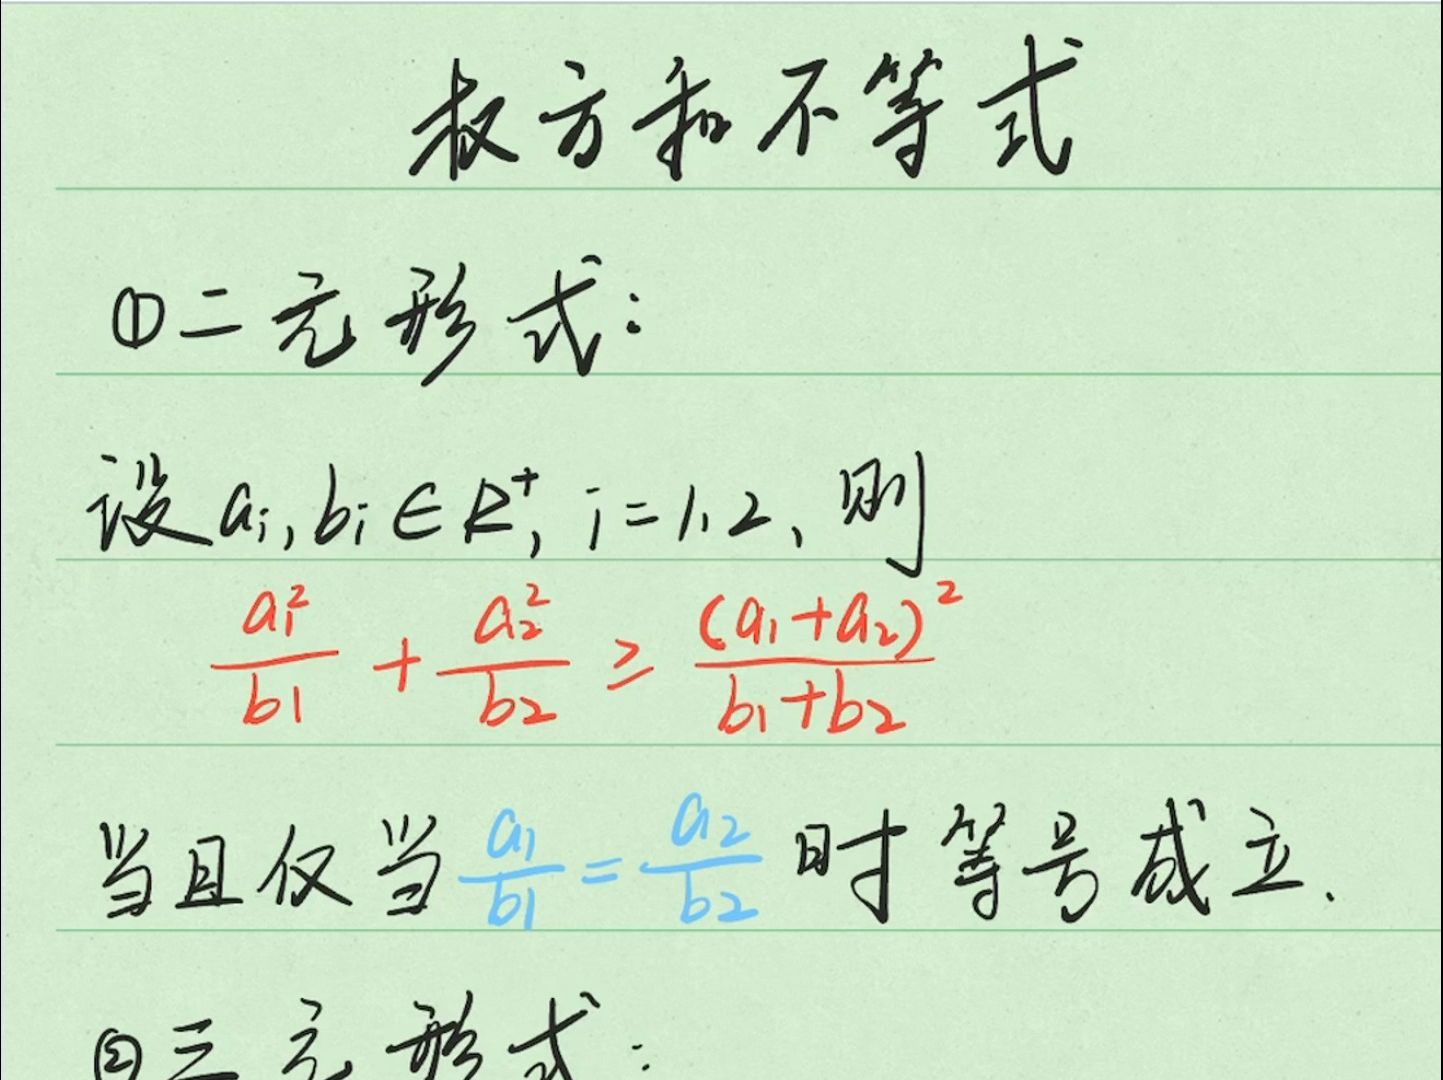 权方和不等式
①二元形式:
设 aᵢ, bᵢ ∈ R⁺, i = 1, 2, 则
a₁²/b1 + a₂²/b2 ≥ (a₁+a₂)²/b₁+b₂
当且仅当 a₁/b1 = a₂/b2 时等号成立.
②三元形式: